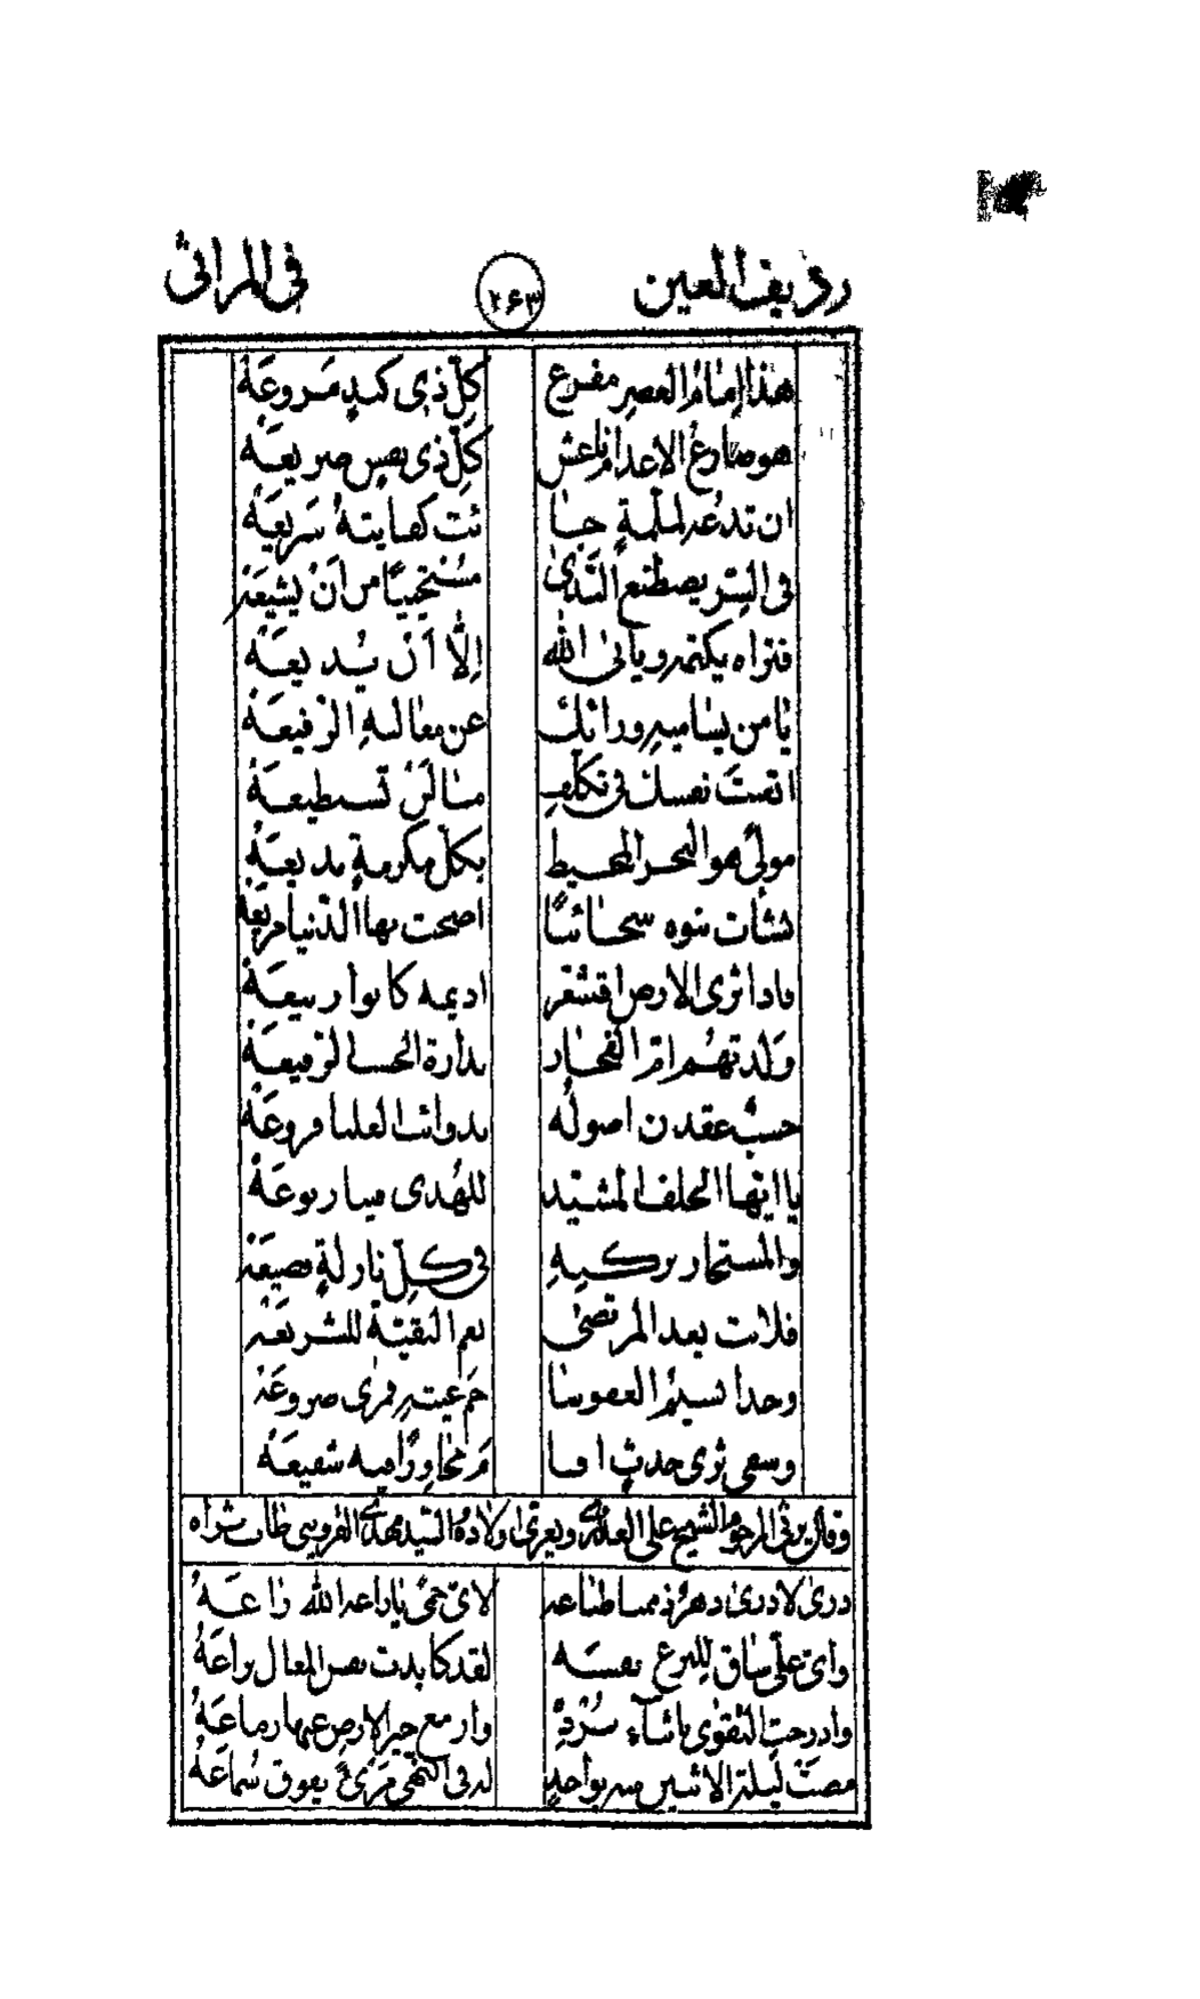 رديف العين ٢٦٣ في المراثي
هذا إمام العصر مفزع كلّ ذي كبدٍ مروعة
هو صارع الاعدام ناعش كلّ ذي بؤسٍ صريعة
ان تدعه لملمّةٍ جبا ئت كفايته سريعة
في السّر يصطنع النّدى مستخييًا من أن يشيعه
فتراه يكتمه ويأبى الله إلّا أن يذيعة
يا من يساميه وراءك عن معاليه الرّفيعة
اتعبت نفسك في تكلّف ما لن تسطيعة
مولىً هو البحر المحيط بكلّ مكرمةٍ بديعة
نشأت بنوه سحائبًا اضحت بها الدّنيا مريعة
فاذا ثرى الارض اقشعر اديمه كانوا ربيعة
ولدتهم امّ الفخار بدارة الحسب الرّفيعة
حسبٌ عقدن اصوله بذوائب العليا فروعة
يا ايّها الخلف المشيّد للهدى فينا ربوعة
والمستجار بركنه في كلّ نازلةٍ فضيعة
فلانت بعد المرتضى نعم البقيّة للشريعة
وحدا نسيم العفو سا
وسقى ثرى جدثٍ اقا م مجاورًا فيه شفيعة
وقال يرثي المرحوم الشيخ علي العذاري ويعزي اولاده السيد مهدي القزويني طاب ثراه
درى لا درى دهر لاىّ حمىً يا راعه الله راعه
واىّ على ساق نفسه لقد كابدت نفس المعالي نزاعه
وادرجت التقوى باثناء بُردِهِ وازمع خير الارض عنها زماعه
مضت ليلة الاثنين منه بواحدٍ له في التّقى مرأىً يفوق سماعه